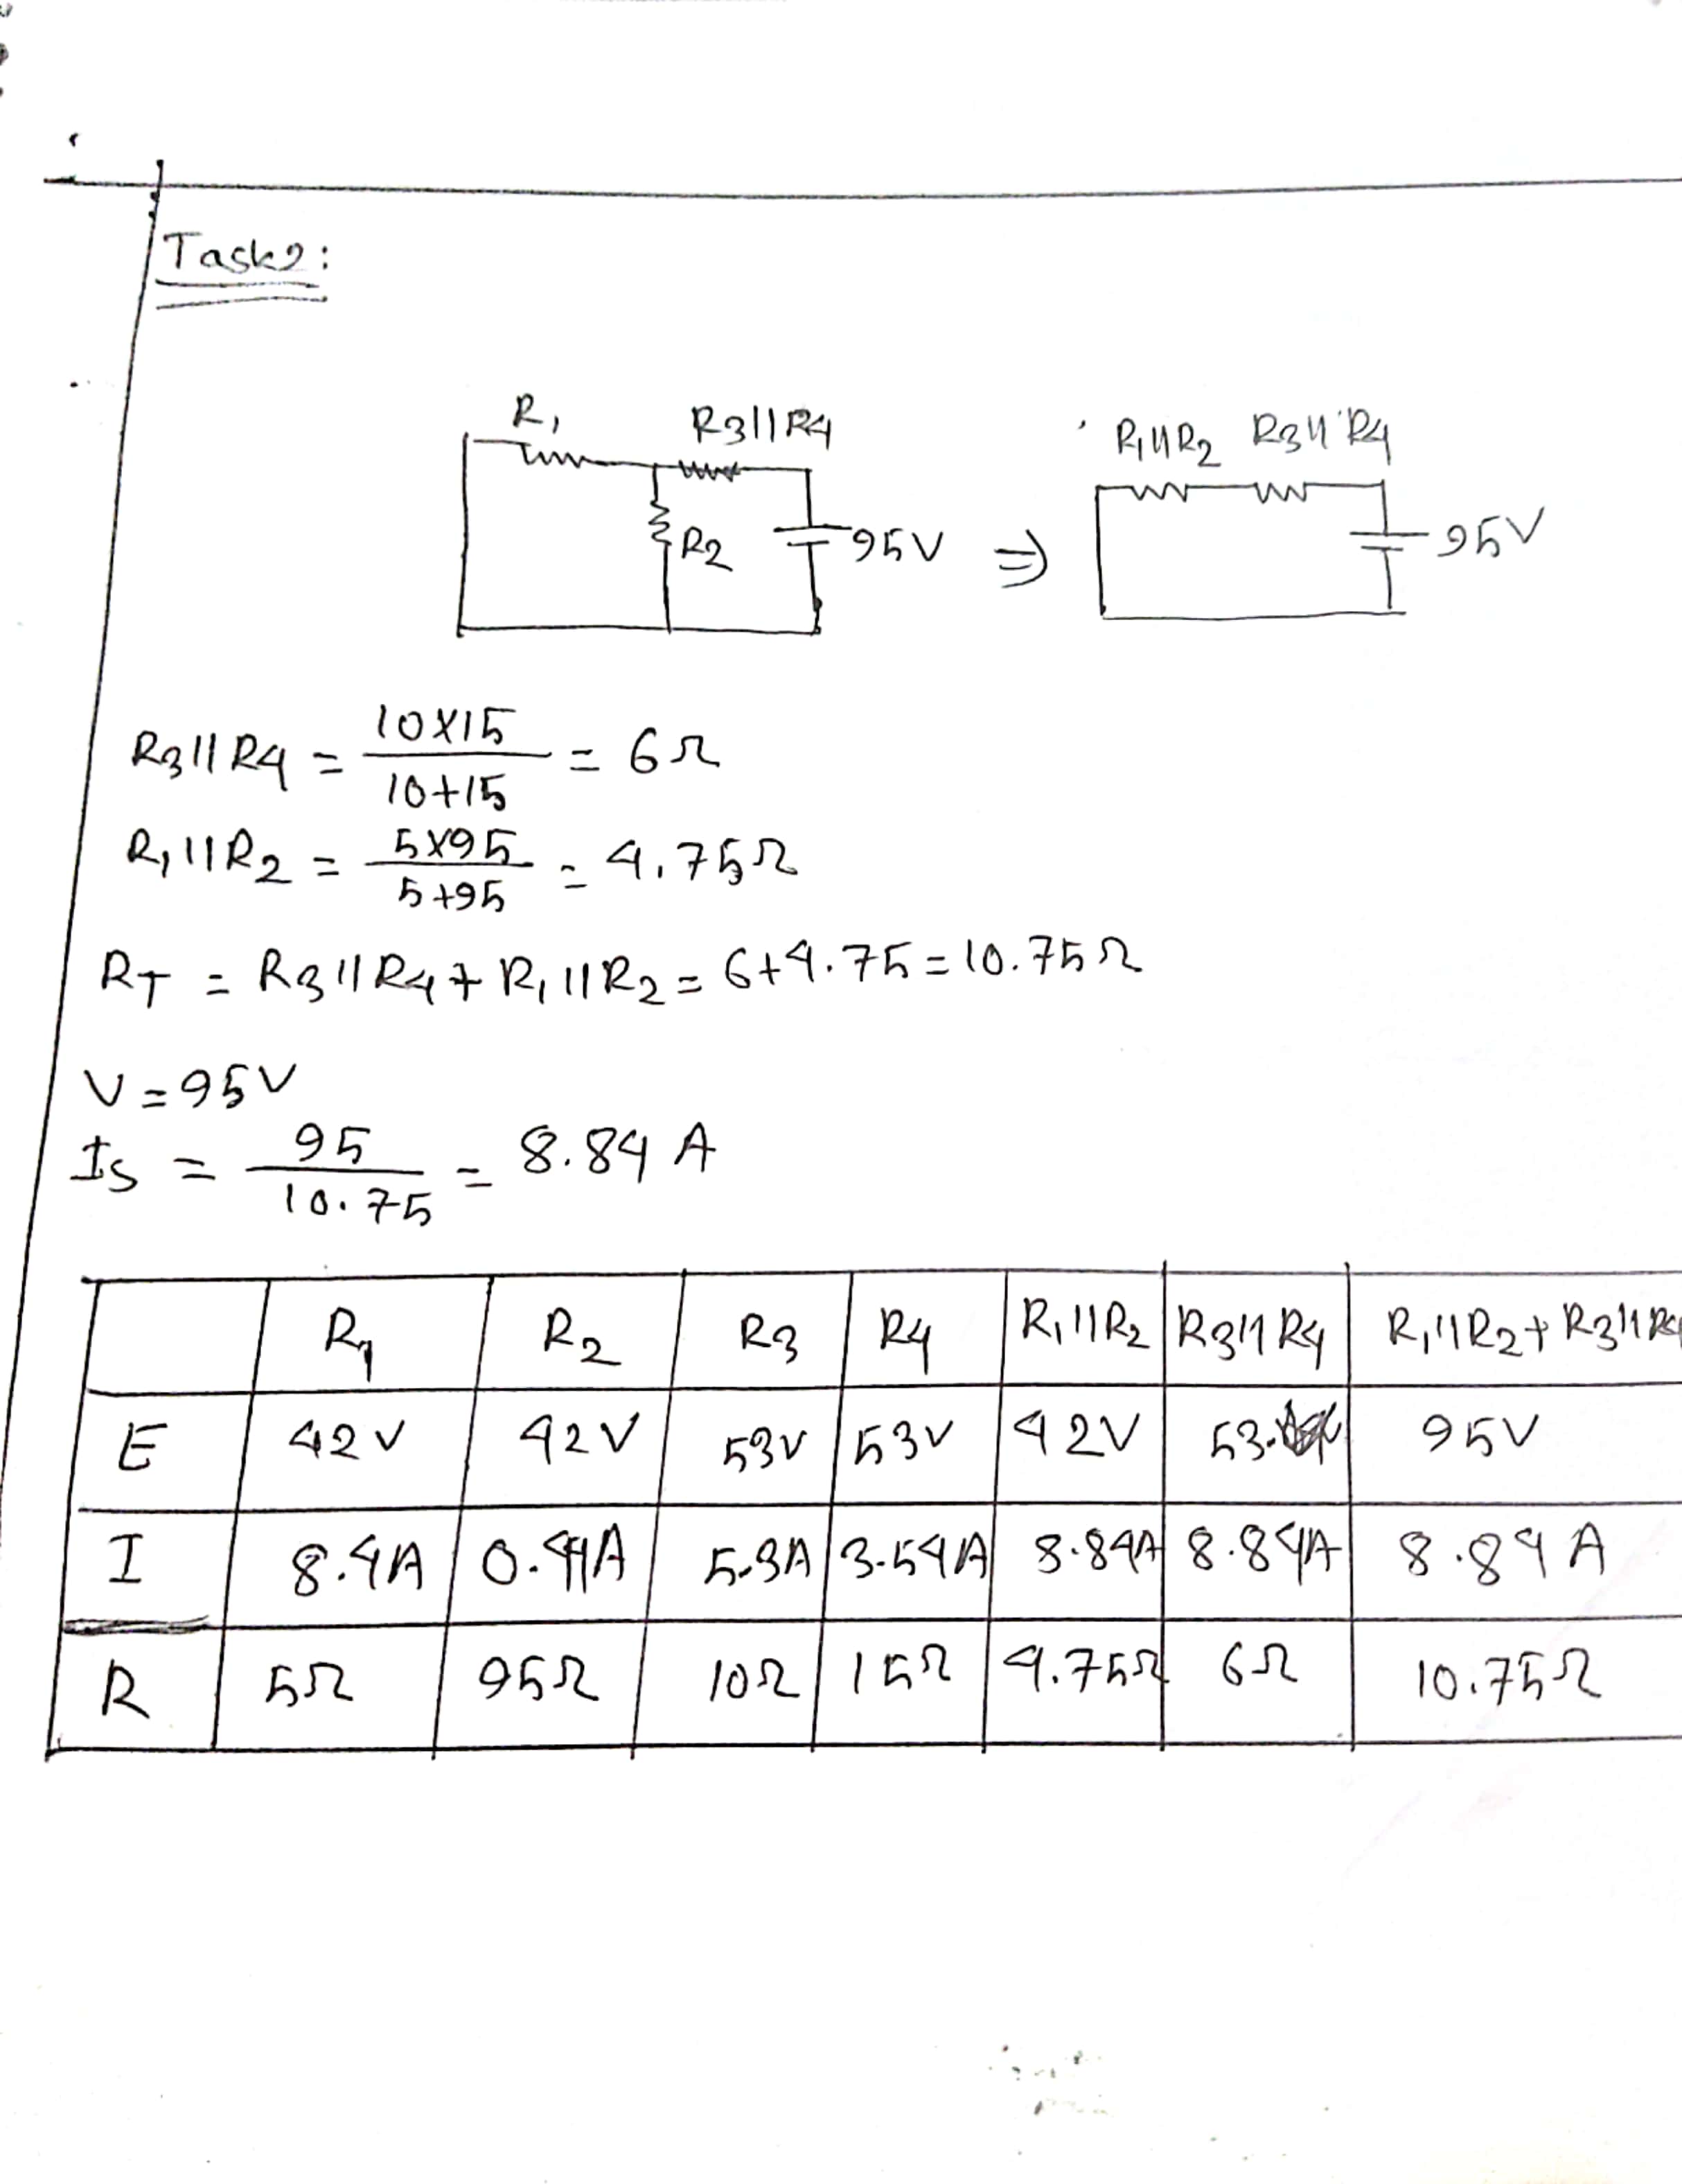 Task2:
R1 R3||R4
R2 95V ⇒
R1||R2 R3||R4
95V
R3||R4 = 10×15 / 10+15 = 6Ω
R1||R2 = 5×95 / 5+95 = 4.75Ω
RT = R3||R4 + R1||R2 = 6+4.75 = 10.75Ω
V = 95V
Is = 95 / 10.75 = 8.84 A
R1 R2 R3 R4 R1||R2 R3||R4 R1||R2 + R3||R4
E 42V 42V 53V 53V 42V 53. 95V
I 8.4A 0.44A 5.3A 3.54A 8.84A 8.84A 8.84 A
R 5Ω 95Ω 10Ω 15Ω 4.75Ω 6Ω 10.75Ω